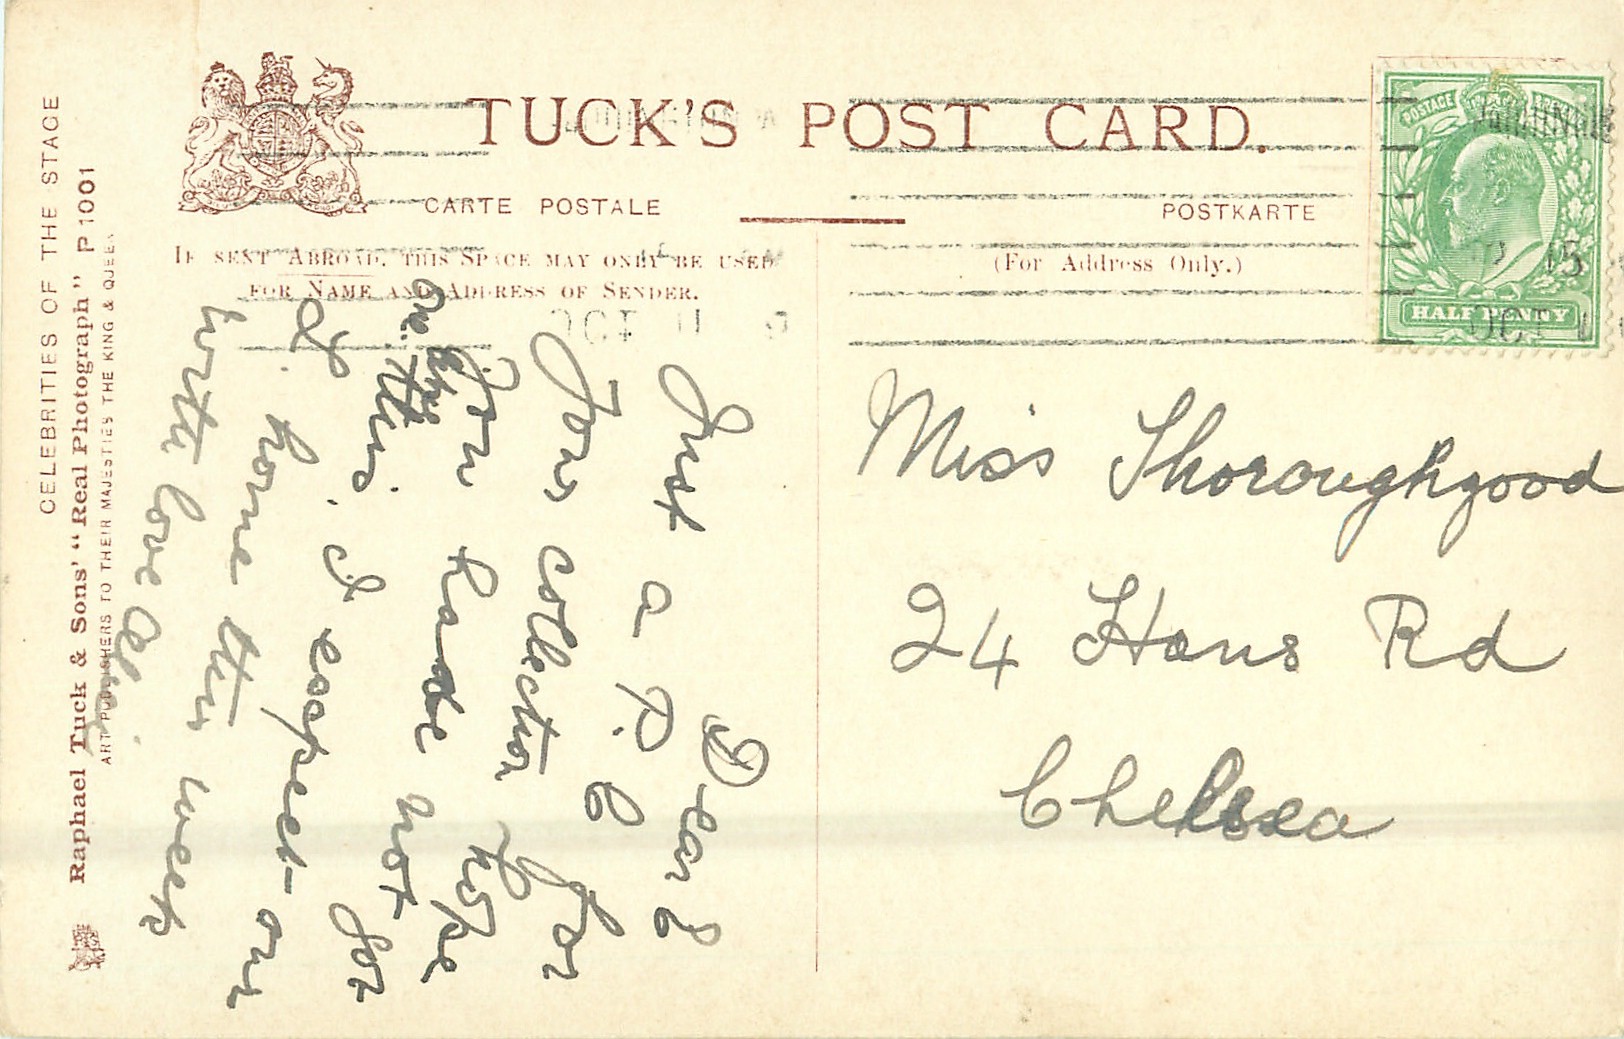 TUCK'S POST CARD.
CARTE POSTALE
POSTKARTE
IF SENT ABROAD, THIS SPACE MAY ONLY BE USED
FOR NAME AND ADDRESS OF SENDER.
(For Address Only.)
POSTAGE REVENUE
HALF PENNY
OCT 11
Miss Thoroughgood
24 Hans Rd
Chelsea
Dear
Just a P.C for
Your collection hope
You have not got
one like this. I exspect our
home this week
with love Alice
CELEBRITIES OF THE STAGE
Raphael Tuck & Sons' "Real Photograph" P 1001
ART PUBLISHERS TO THEIR MAJESTIES THE KING & QUEEN